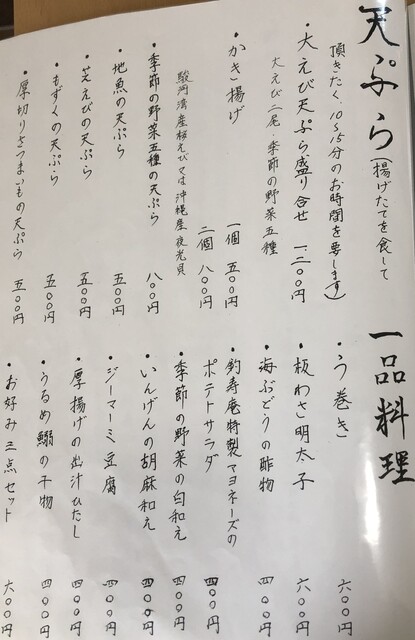 天ぷら(揚げたてを食して
頂きたく、10〜15分のお時間を要します)
・大えび天ぷら盛り合せ 一、二〇〇円
大えび二尾・季節の野菜五種
・かき揚げ 一個 五〇〇円
二個 八〇〇円
駿河湾産桜えび又は沖縄産夜光貝
・季節の野菜五種の天ぷら 八〇〇円
・地魚の天ぷら 五〇〇円
・芝えびの天ぷら 五〇〇円
・もずくの天ぷら 五〇〇円
・厚切りさつまいもの天ぷら 五〇〇円
一品料理
・う巻き 六〇〇円
・板わさ明太子 六〇〇円
・海ぶどうの酢物 四〇〇円
・釣寿庵特製マヨネーズの
ポテトサラダ 四〇〇円
・季節の野菜の白和え 四〇〇円
・いんげんの胡麻和え 四〇〇円
・ジーマーミ豆腐 四〇〇円
・厚揚げの出汁ひたし 四〇〇円
・うるめ鰯の干物 四〇〇円
・お好み三点セット 六〇〇円